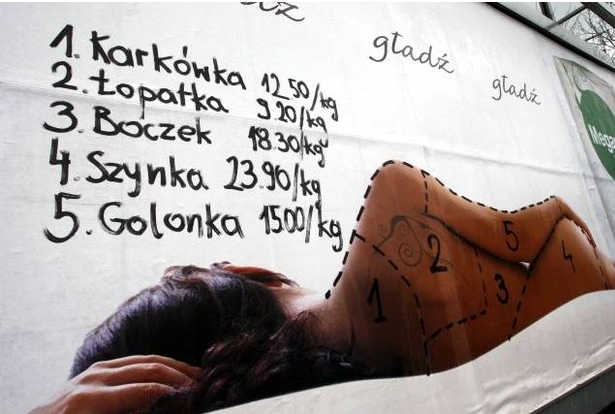 gładź
gładź
1. Karkówka 12.50/kg
2. Łopatka 9.20/kg
3. Boczek 18.30/kg
4. Szynka 23.90/kg
5. Golonka 1500/kg
1
2
3
4
5